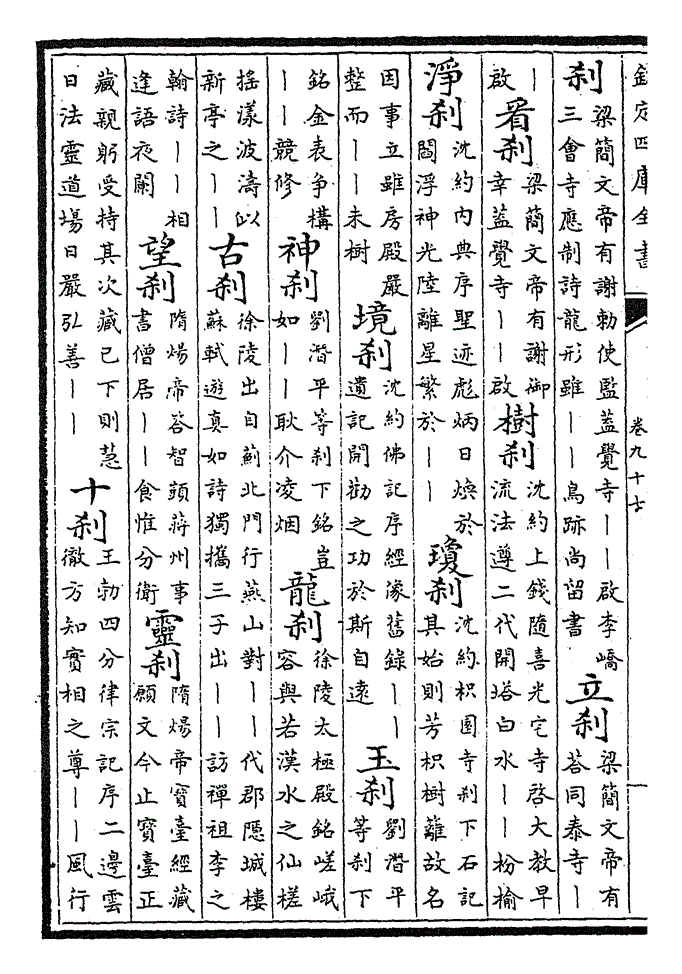 欽定四庫全書
卷九十七
刹
梁簡文帝有謝勅使監蓋覺寺丨丨啟李嶠
三會寺應制詩龍形雖丨丨鳥跡尚留書
立刹
梁簡文帝有
荅同泰寺丨
丨
啟
看刹
梁簡文帝有謝御
幸蓋覺寺丨丨啟
樹刹
沈約上錢隨喜光宅寺啓大教早
流法遵二代開塔白水丨丨枌榆
淨刹
沈約内典序聖迹彪炳日煥於
閻浮神光陸離星繁於丨丨
瓊刹
沈約枳園寺刹下石記
其始則芳枳樹籬故名
因事立雖房殿嚴
整而丨丨未樹
境刹
沈約佛記序經像舊錄丨丨
遺記開勸之功於斯自遠
玉刹
劉潛平
等刹下
銘金表争構
丨丨競修
神刹
劉潛平等刹下銘豈
如丨丨耿介凌烟
龍刹
徐陵太極殿銘嵯峨
容與若漢水之仙槎
摇漾波濤似
新亭之丨丨
古刹
徐陵出自薊北門行燕山對丨丨代郡隱城樓
蘇軾遊真如詩獨攜三子出丨丨訪禪祖李之
翰詩丨丨相
逢語夜闌
望刹
隋煬帝荅智顗蔣州事
書僧居丨丨食惟分衛
靈刹
隋煬帝寶臺經藏
願文今止寶臺正
藏親躬受持其次藏已下則慧
日法靈道場日嚴弘善丨丨
十刹
王勃四分律宗記序二邊雲
徹方知實相之尊丨丨風行